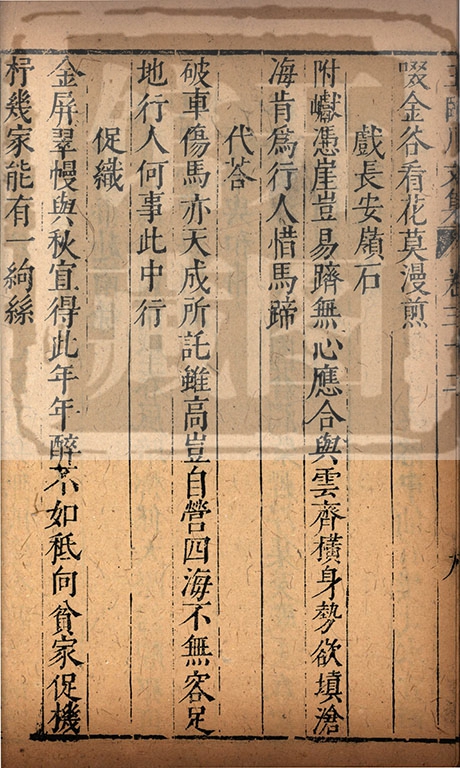 王臨川文集 卷三十二
啜金谷看花莫漫煎
戲長安嶺石
附巘憑崖豈易躋無心應合與雲齊橫身勢欲填滄
海肯爲行人惜馬蹄
代荅
破車傷馬亦天成所託雖高豈自營四海不無容足
地行人何事此中行
促織
金屏翠幔與秋宜得此年年醉不如秪向貧家促機
杼幾家能有一絇絲